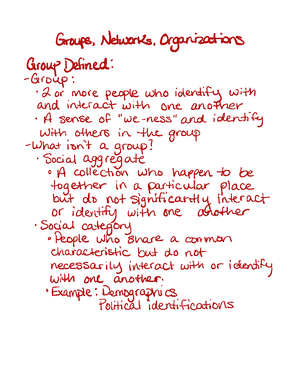 Groups, Networks, Organizations
Group Defined:
-Group:
· 2 or more people who identify with
and interact with one another
· A sense of "we-ness" and identify
with others in the group
-What isn't a group?
· Social aggregate
∘ A collection who happen to be
together in a particular place
but do not significantly interact
or identify with one another
· Social category
∘ People who share a common
characteristic but do not
necessarily interact with or identify
with one another.
∘ Example: Demographics
Political identifications